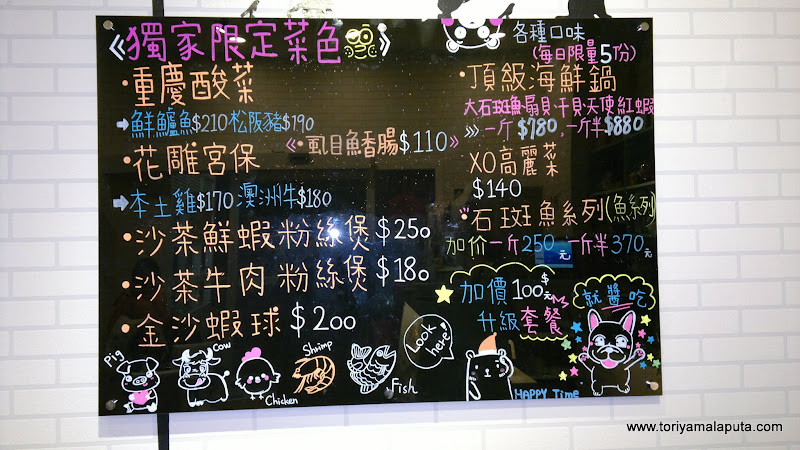 《獨家限定菜色》
·重慶酸菜
➡鮮鱸魚$210松阪豬$190
·花雕宮保
➡本土雞$170澳洲牛$180
《·虱目魚香腸$110》
·沙茶鮮蝦粉絲煲$250
·沙茶牛肉粉絲煲$180
·金沙蝦球$200
各種口味
(每日限量5份)
·頂級海鮮鍋
大石斑魚扇貝、干貝、天使紅蝦
一斤$780、一斤半$880
XO高麗菜
$140
·石斑魚系列(魚系列)
加价一斤250元一斤半370元
加價100$元
升級套餐
就醬吃
Pig
Cow
Chicken
Shrimp
Fish
Look here!
HAPPY Time
www.toriyamalaputa.com